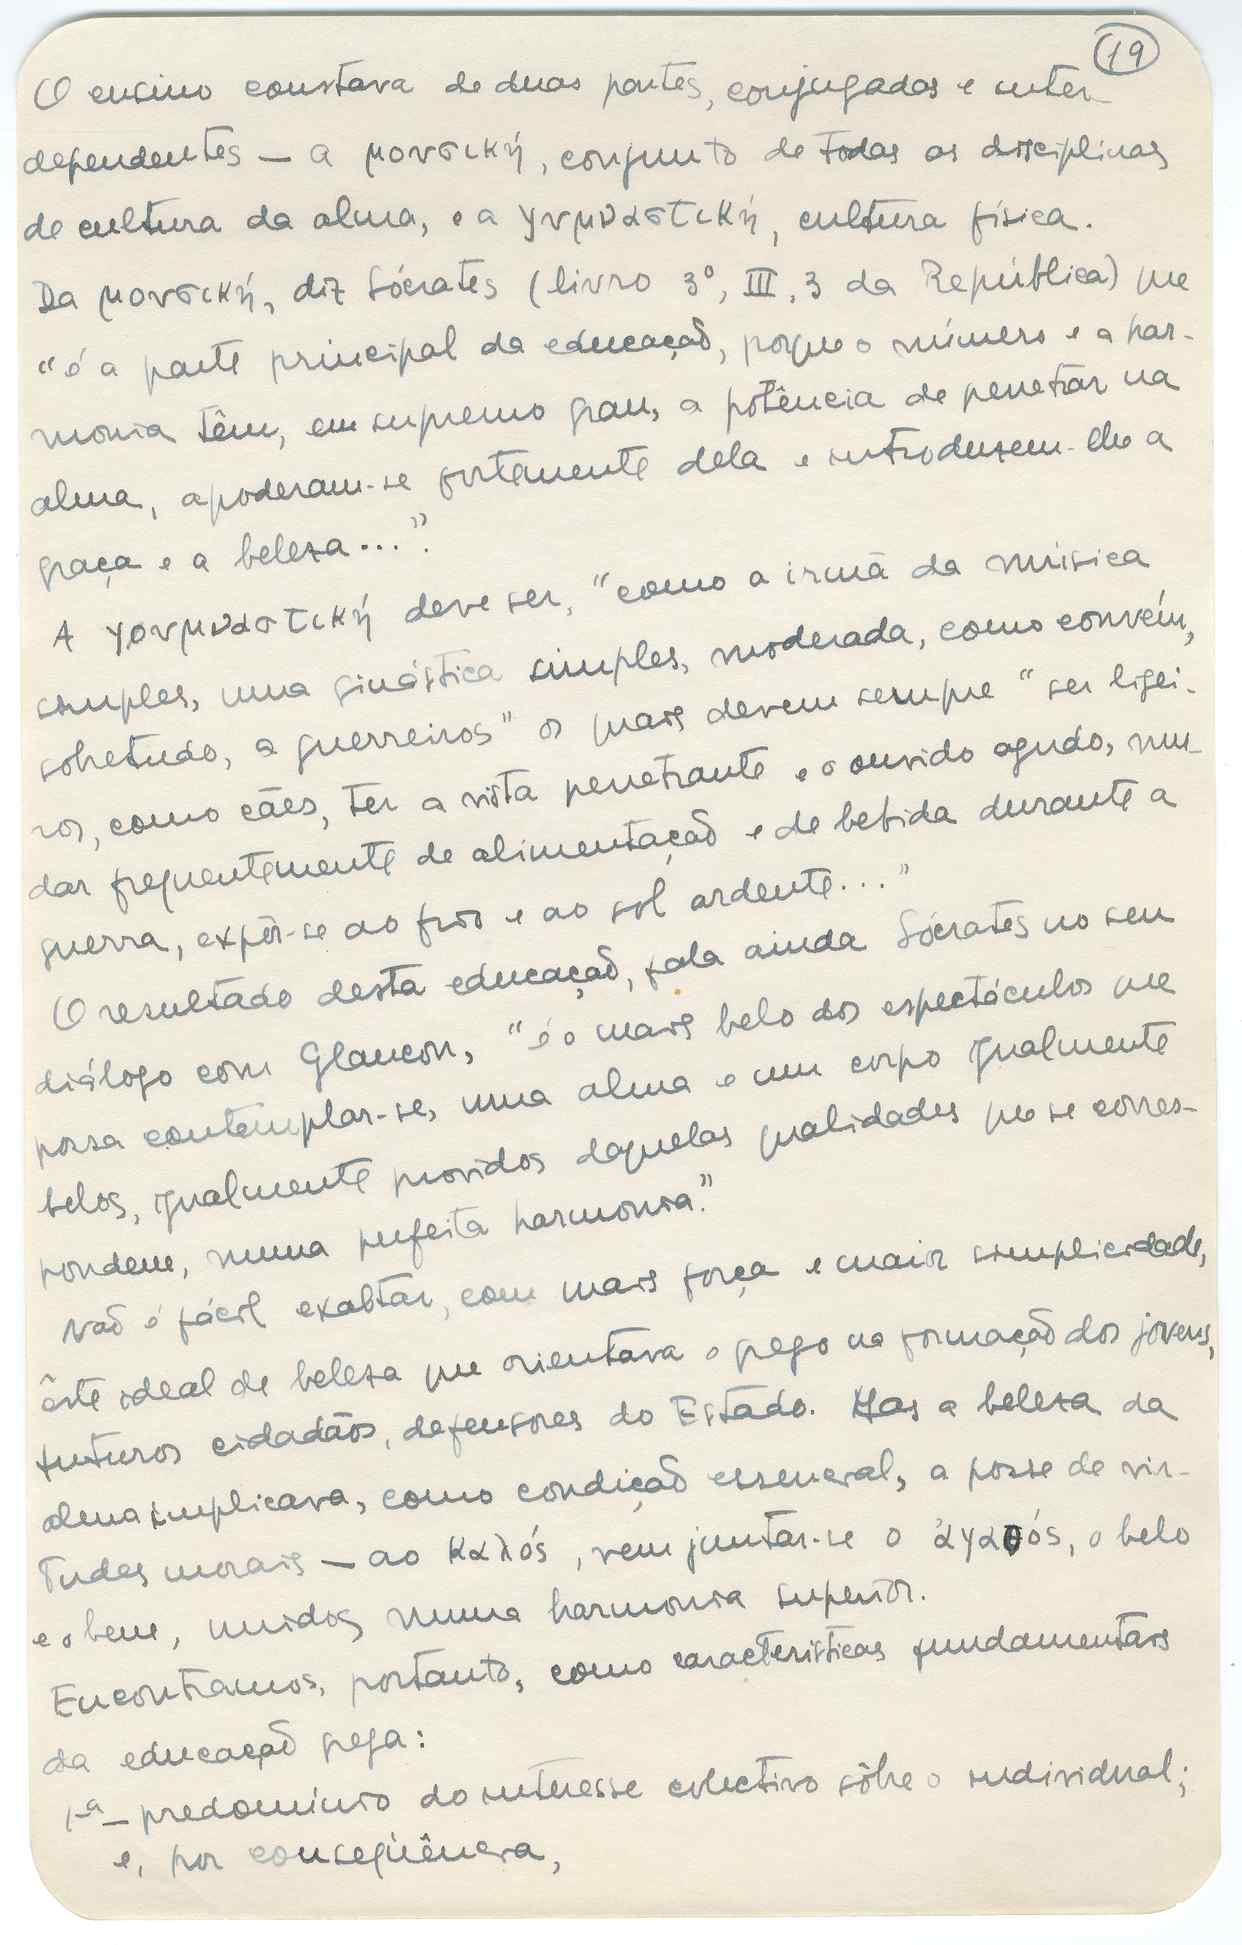 19
O ensino constava de duas partes, conjugadas e inter-
dependentes — a μουσική, conjunto de todas as disciplinas
de cultura da alma, e a γυμναστική, cultura física.
Da μουσική, diz Sócrates (livro 3º, III, 3 da República) que
"é a parte principal da educação, porque o número e a har-
monia têm, em supremo grau, a potência de penetrar na
alma, apoderam-se fortemente dela e introduzem-lhe a
graça e a beleza...".
A γουμναστική deve ser, "como a irmã da música
simples, uma ginástica simples, moderada, como convém,
sobretudo, a guerreiros" os quais devem sempre "ser ligei-
ros, como cães, ter a vista penetrante e o ouvido agudo, mu-
dar frequentemente de alimentação e de bebida durante a
guerra, expôr-se ao frio e ao sol ardente..."
O resultado desta educação, fala ainda Sócrates no seu
diálogo com Glaucon, "é o mais belo dos espectáculos que
possa contemplar-se, uma alma e um corpo igualmente
belos, igualmente providos daquelas qualidades que se corres-
pondem, numa perfeita harmonia."
Não é fácil exaltar, com mais força e maior simplicidade,
êste ideal de beleza que orientava o grego na formação dos jovens,
futuros cidadãos, defensores do Estado. Mas a beleza da
alma implicava, como condição essencial, a posse de vir-
tudes morais — ao καλός, vem juntar-se o ἀγαθός, o belo
e o bem, unidos numa harmonia superior.
Encontramos, portanto, como características fundamentais
da educação grega:
1ª — predomínio do interesse colectivo sôbre o individual;
e, por conseqüência,